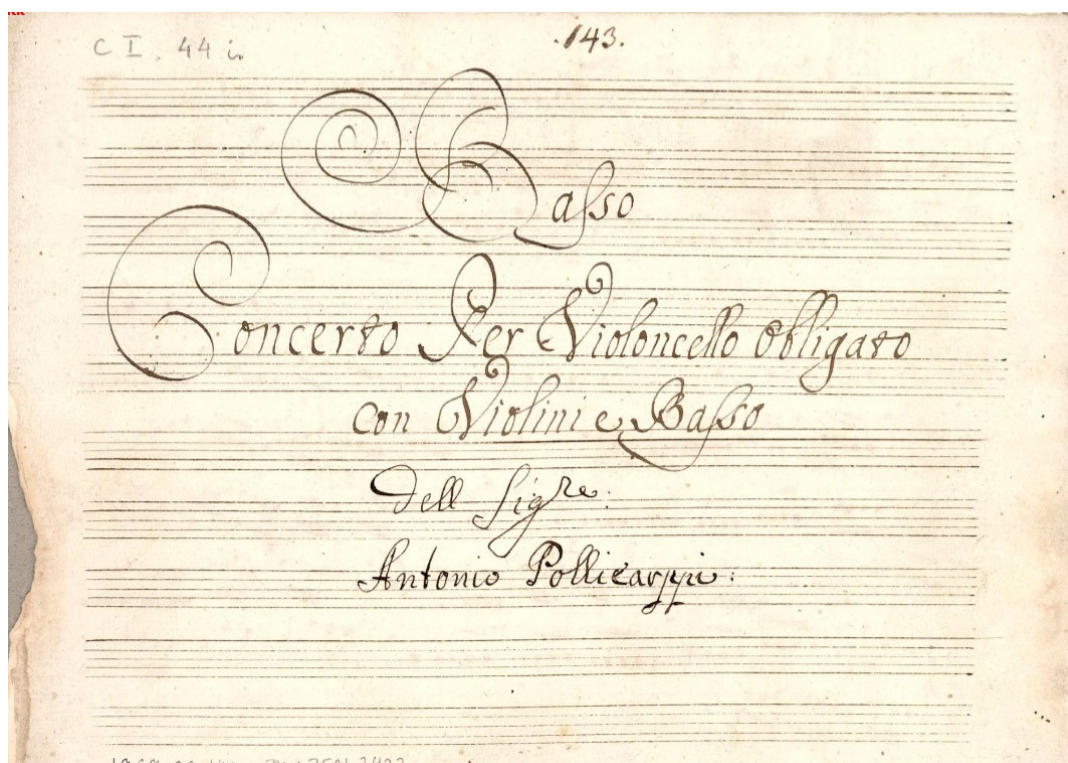 C I. 44 in
.143.
Basso
Concerto Per Violoncello obligato
con Violini e Basso
Dell Sig.re
Antonio Pollicarppi: